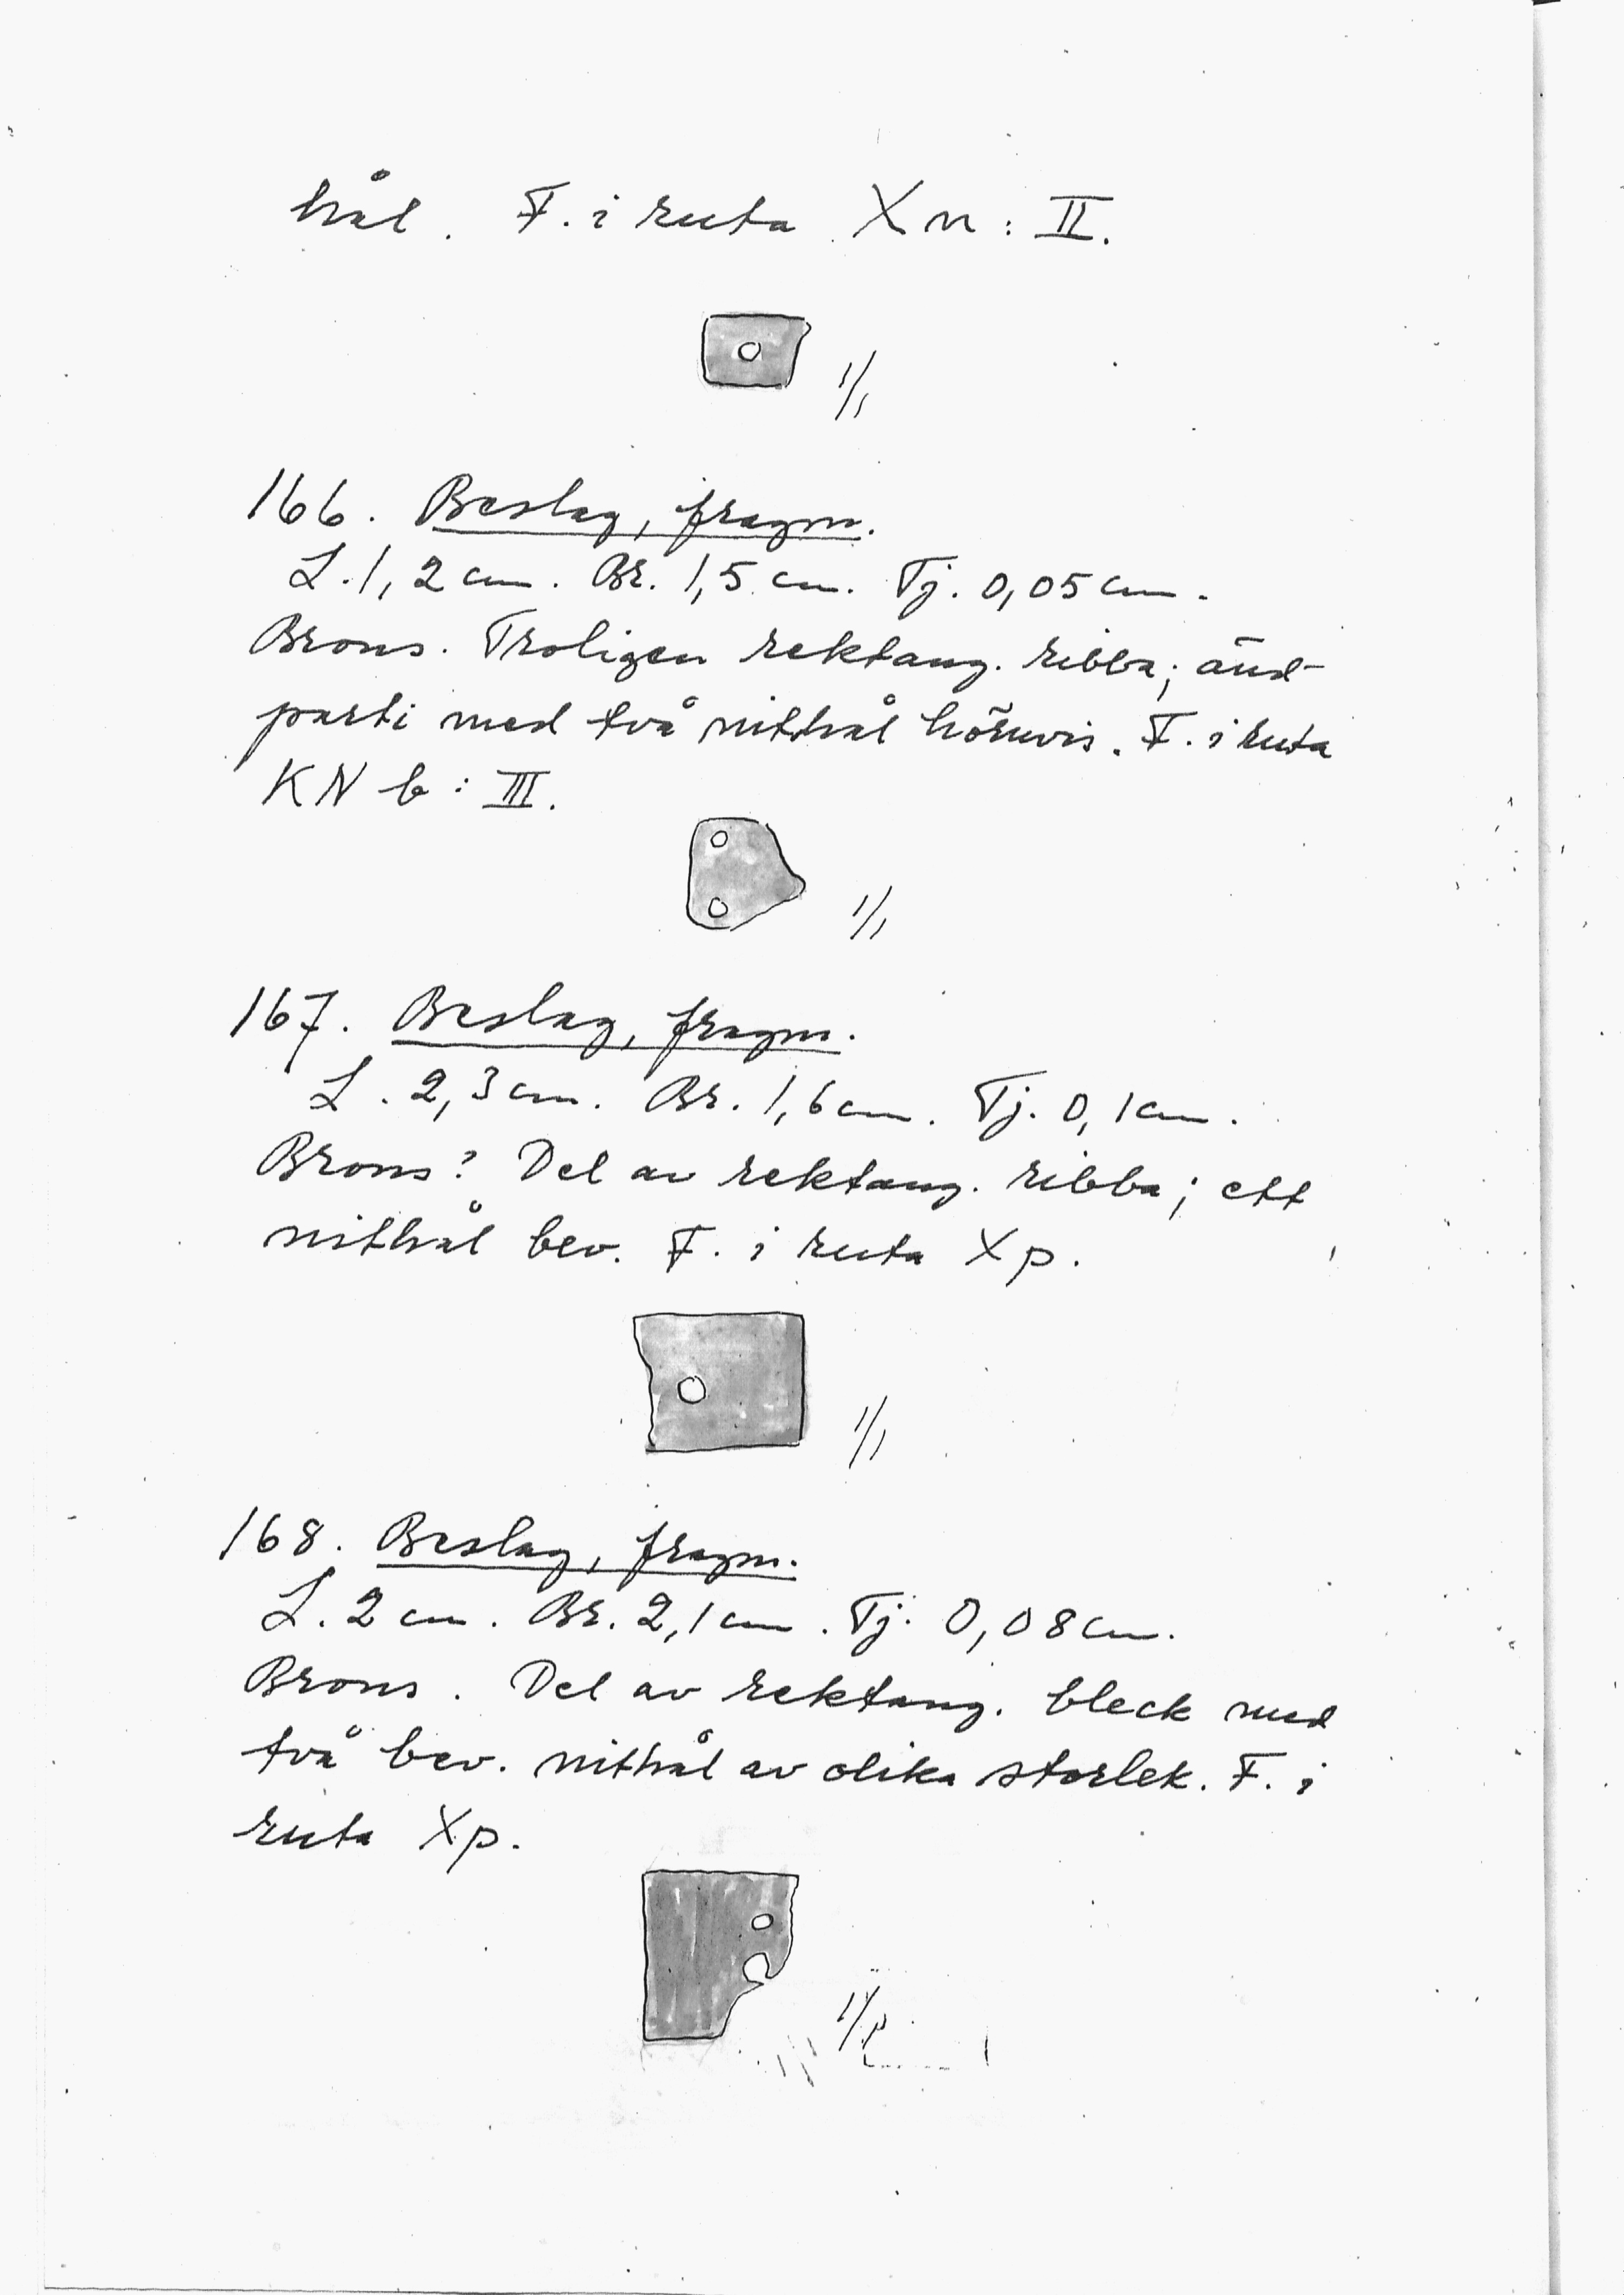 hål. F. i ruta Xn: II.
1/1
166. Beslag, fragm.
L. 1,2 cm. Br. 1,5 cm. Tj. 0,05 cm.
Brons. Troligen rektang. ribba; änd-
parti med två nithål hörnvis. F. i ruta
KN b: III.
1/1
167. Beslag, fragm.
L. 2,3 cm. Br. 1,6 cm. Tj. 0,1 cm.
Brons? Del av rektang. ribba; ett
nithål bev. F. i ruta Xp.
1/1
168. Beslag, fragm.
L. 2 cm. Br. 2,1 cm. Tj. 0,08 cm.
Brons. Del av rektang. bleck med
två bev. nithål av olika storlek. F. i
ruta Xp.
1/1